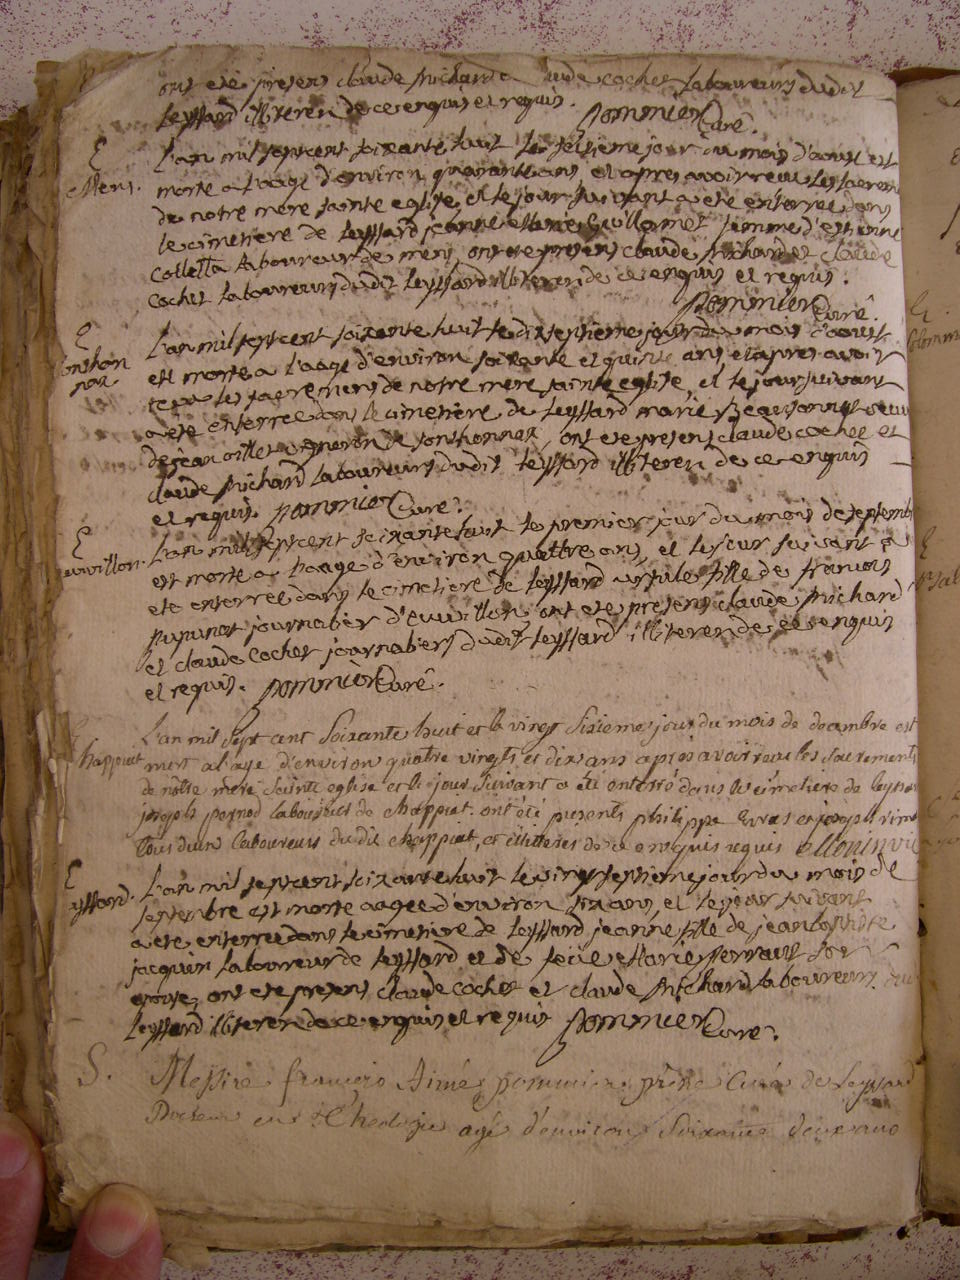 ont ete presens claude Michard claude cochet laboureurs dudit
Leyssard illiteren de ce enquis et requis. Pommier Curé.
E
Mens.
L'an mil sept cent soixante huit le seisieme jour du mois d'aoust est
morte a l'aage d'environ quarante ans, et apres avoir receu les sacrem
de notre mere sainte eglise, et le jour suivant a eté enterree dans
le cimetiere de Leyssard jeanne Marie Guillermet femme d'estienne
Colletta laboureur de mens, ont ete presens claude Michard et claude
cochet laboureurs dudit Leyssard illiteren de ce enquis et requis.
Pommier Curé.
E
L'an mil sept cent soixante huit le dixseptieme jour du mois d'aoust
est morte a l'aage d'environ soixante et quinze ans et apres avoir
receu les sacremens de notre mere sainte eglise, et le jour suivant
a ete enterree dans le cimetiere de Leyssard marie
de jean vigneron de ont ete presens claude cochet et
claude Michard laboureurs dudit Leyssard illiteren de ce enquis
et requis. Pommier Curé.
E
L'an mil sept cent soixante huit le premier jour du mois de septemb
est morte a l'aage d'environ quattre ans, et le jour suivant a
ete enterree dans le cimetiere de Leyssard ursule fille de francois
journalier d'euvillon, ont ete presens claude Michard
et claude cochet journaliers dudit Leyssard illiteren de ce enquis
et requis. Pommier Curé.
chappiat
L'an mil sept cent soixante huit et le vingt sixieme jour du mois de decembre est
mort a l'age d'environ quatre vingts et dix ans apres avoir receu les sacrements
de nôtre mere sainte eglise et le jour suivant a été enterré dans le cimetiere de leyssar
joseph pernod laboureur de chappiat. ont été presents philippe et joseph
tous deux laboureurs dudit chappiat, et illiteres de ce enquis requis
E
yssard.
L'an mil sept cent soixante huit le vingt septieme jour du mois de
septembre est morte aagee d'environ six ans, et le jour suivant
a ete enterree dans le cimetiere de Leyssard jeanne fille de jean baptiste
jacquin laboureur de Leyssard et de feüe Marie son
epouse, ont ete presens claude cochet et claude Michard laboureurs du
Leyssard illiteren de ce enquis et requis Pommier Curé.
S. Messire françois Aimé pommier prêtre Curé de Leyssard
Docteur en Theologie agé d'environ soixante deux ans